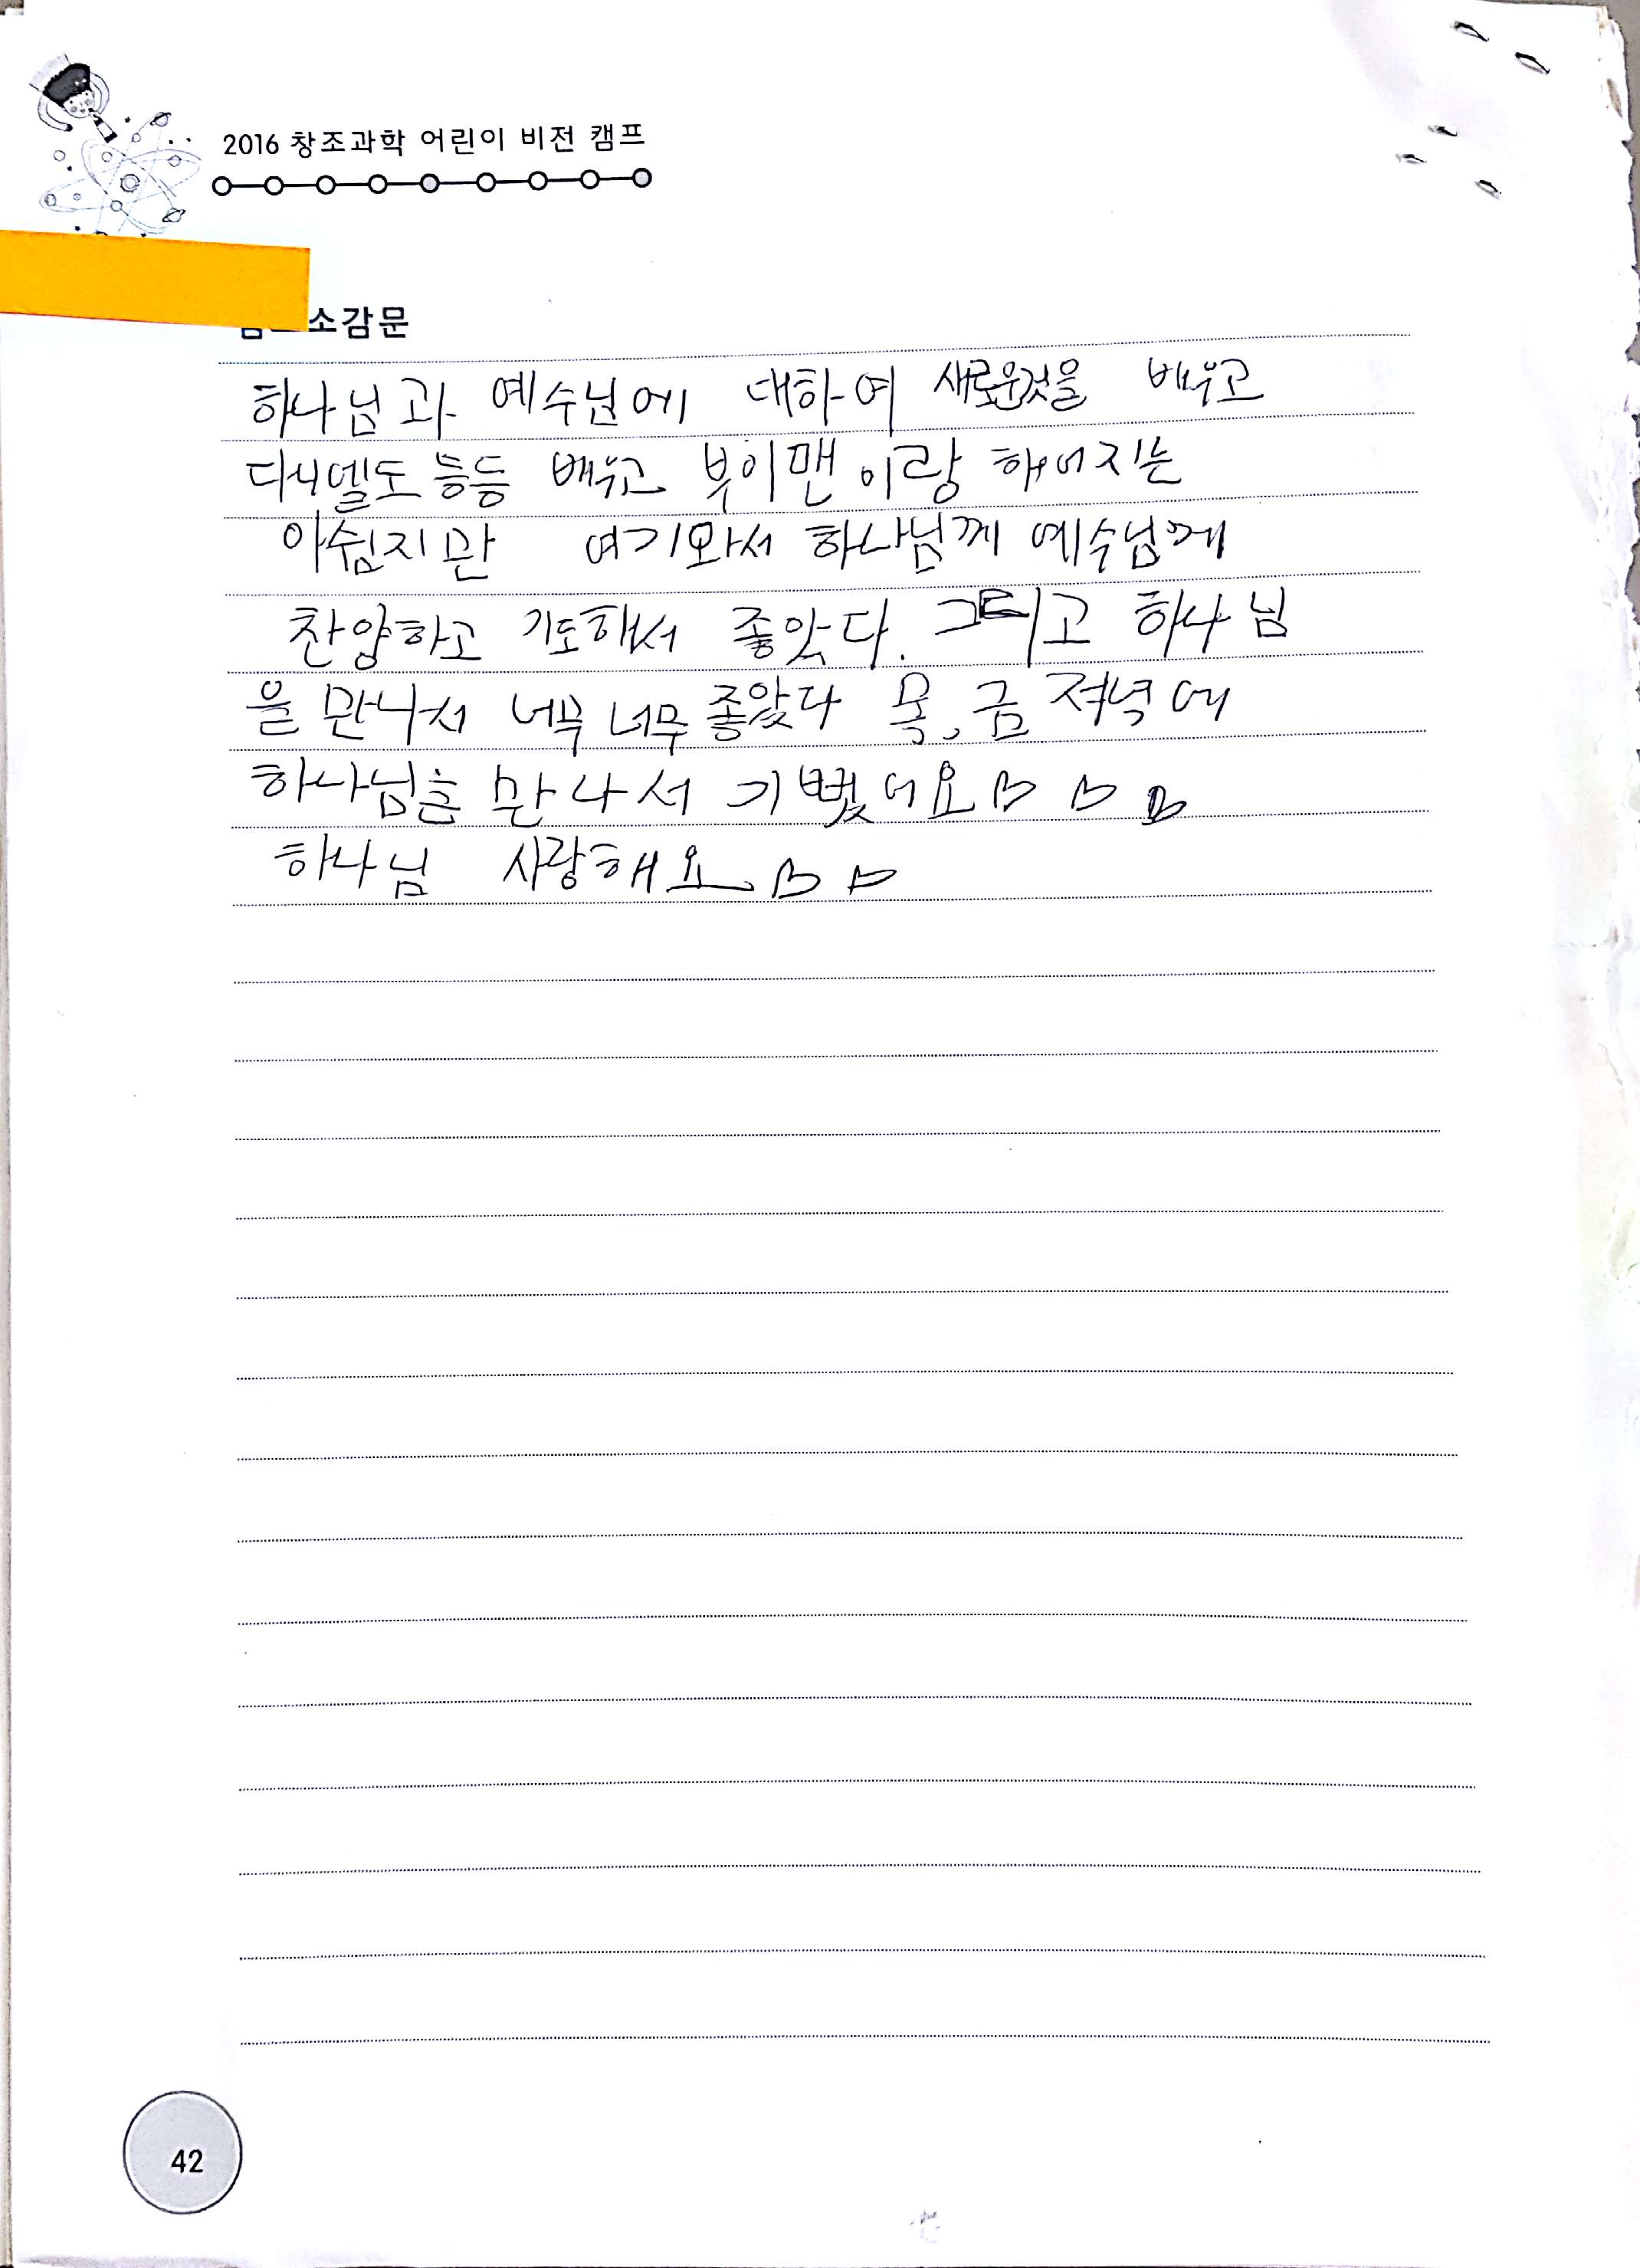 2016 창조과학 어린이 비전 캠프
소감문
하나님과 예수님에 대하여 새로운것을 배우고
다니엘도 등등 배우고 부이맨이랑 해어지는
아쉽지만 여기와서 하나님께 예수님께
찬양하고 기도해서 좋았다. 그리고 하나님
을 만나서 너무 너무 좋았다 목, 금 저녁에
하나님을 만나서 기뻤어요♡ ♡ ♡
하나님 사랑해요♡ ♡
42